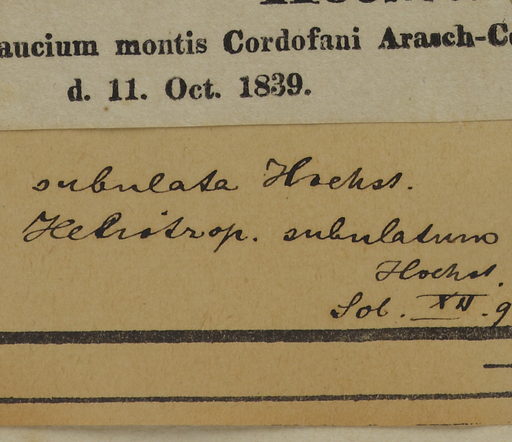 aucium montis Cordofani Arasch-C
d. 11. Oct. 1839.
subulata Hochst.
Heliotrop. subulatum
Hochst.
Sol. XII. 9